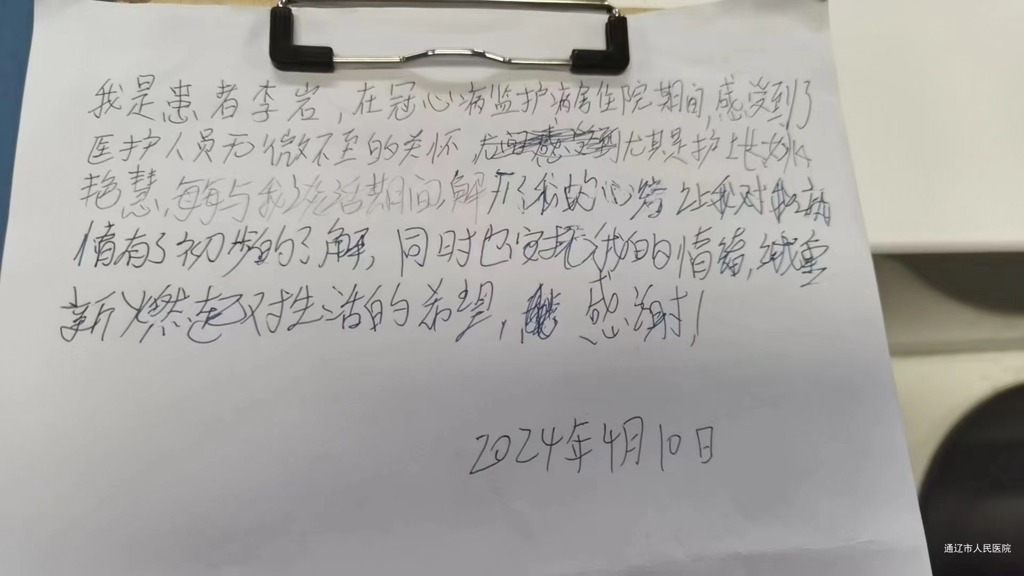 我是患者李岩,在冠心病监护病房住院期间,感受到了
医护人员无微不至的关怀,尤其是护士长
艳慧,每每与我生活期间解开了我的心结让我对我病
情有了初步的了解,同时也安抚我的情绪,
新燃起对生活的希望,感谢!
2024年4月10日
通辽市人民医院